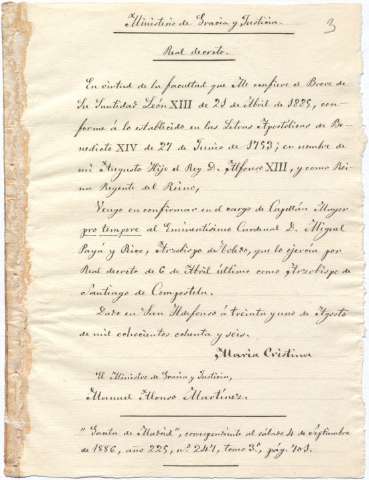 Ministerio de Gracia y Justicia.
3
Real decreto.
En virtud de la facultad que Me confiere el Breve de
Su Santidad León XIII de 21 de Abril de 1885, con-
forme á lo establecido en las Letras Apostólicas de Be-
nedicto XIV de 27 de Junio de 1753; en nombre de
mi Augusto Hijo el Rey D. Alfonso XIII, y como Rei-
na Regente del Reino,
Vengo en confirmar en el cargo de Capellán Mayor
pro tempore al Eminentísimo Cardenal D. Miguel
Payá y Rico, Arzobispo de Toledo, que lo ejercía por
Real decreto de 6 de Abril último como Arzobispo de
Santiago de Compostela.
Dado en San Ildefonso á treinta y uno de Agosto
de mil ochocientos ochenta y seis.
María Cristina
El Ministro de Gracia y Justicia,
Manuel Alonso Martínez.
"Gaceta de Madrid", correspondiente al sábado 4 de Septiembre
de 1886, año 225, nº 247, tomo 3º, pág. 703.